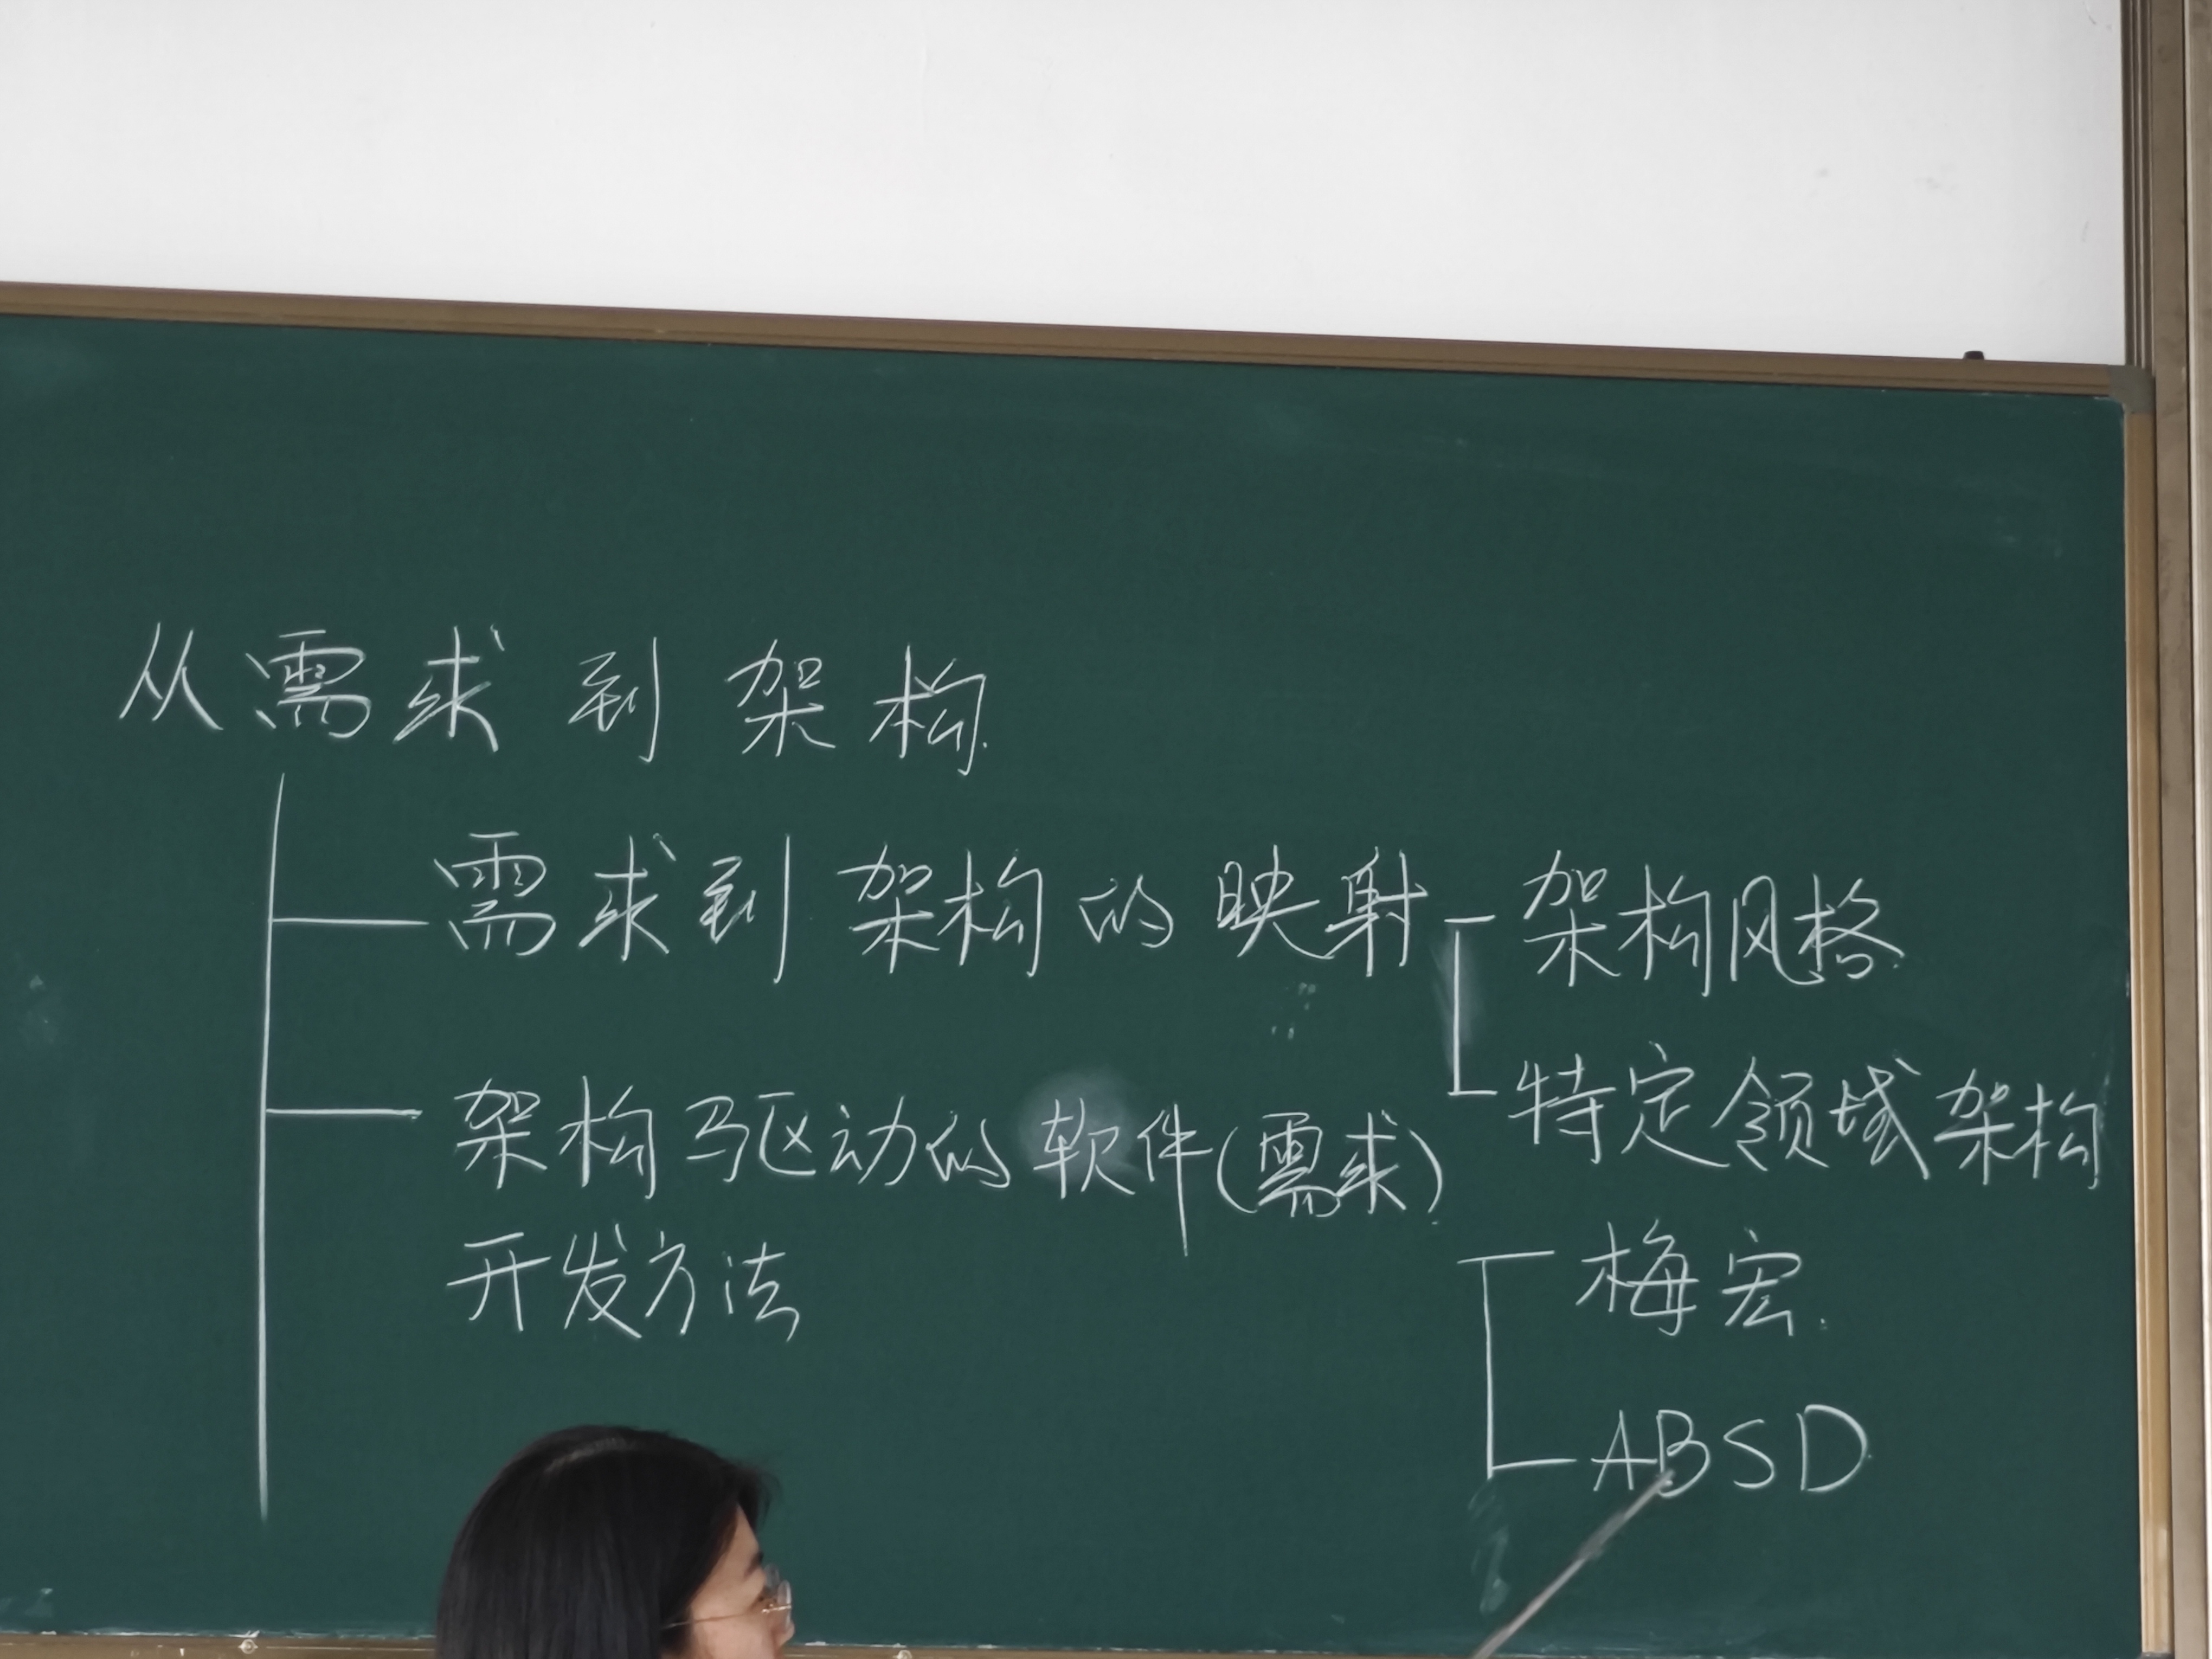 从需求到架构.
需求到架构的映射
架构风格.
特定领域架构
架构驱动的软件(需求).
开发方法
梅宏.
ABSD